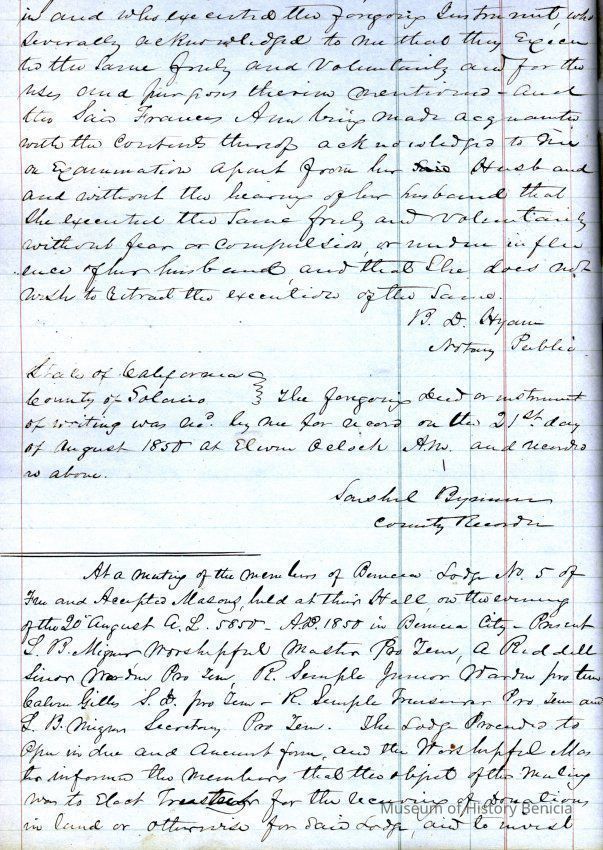 in and who executed the foregoing Instrument, who
severally acknowledged to me that they Execu
ted the same freely and Voluntarily and for the
uses and purposes therein mentioned – and
the Said Frances Ann being made acquainted
with the contents thereof acknowledged to me
on Examination apart from her Husband
and without the hearing of her husband that
She executed the Same freely and Voluntarily
without fear or compulsion, or undue influ
ence of her husband and that She does not
wish to retract the execution of the Same.
B. D. Hyam
Notary Public
State of California
County of Solano } The foregoing deed or instrument
of writing was recd. by me for record on the 21st day
of August 1850 at Eleven Oclock A.M. and recorded
as above.
Bynum
County Recorder
At a meeting of the members of Benicia Lodge No. 5 of
Free and Accepted Masons, held at their Hall, on the evening
of the 20 August A.L. 5850 – AD. 1850 in Benicia City – Present
L. B. Mizner Worshipful Master Pro Tem, A Riddell
Senior Warden Pro Tem, R. Semple Junior Warden pro tem
Calvin Gilles S.D. pro Tem – R. Semple Treasurer Pro Tem and
L. B. Mizner Secretary Pro Tem. The Lodge Proceeded to
Open in due and Ancient form, and the Worshipful Mas
ter informed the members that the object of the Meeting
was to Elect for the receiving of donations
in land or otherwise for Said Lodge, and to invest
Museum of History Benicia